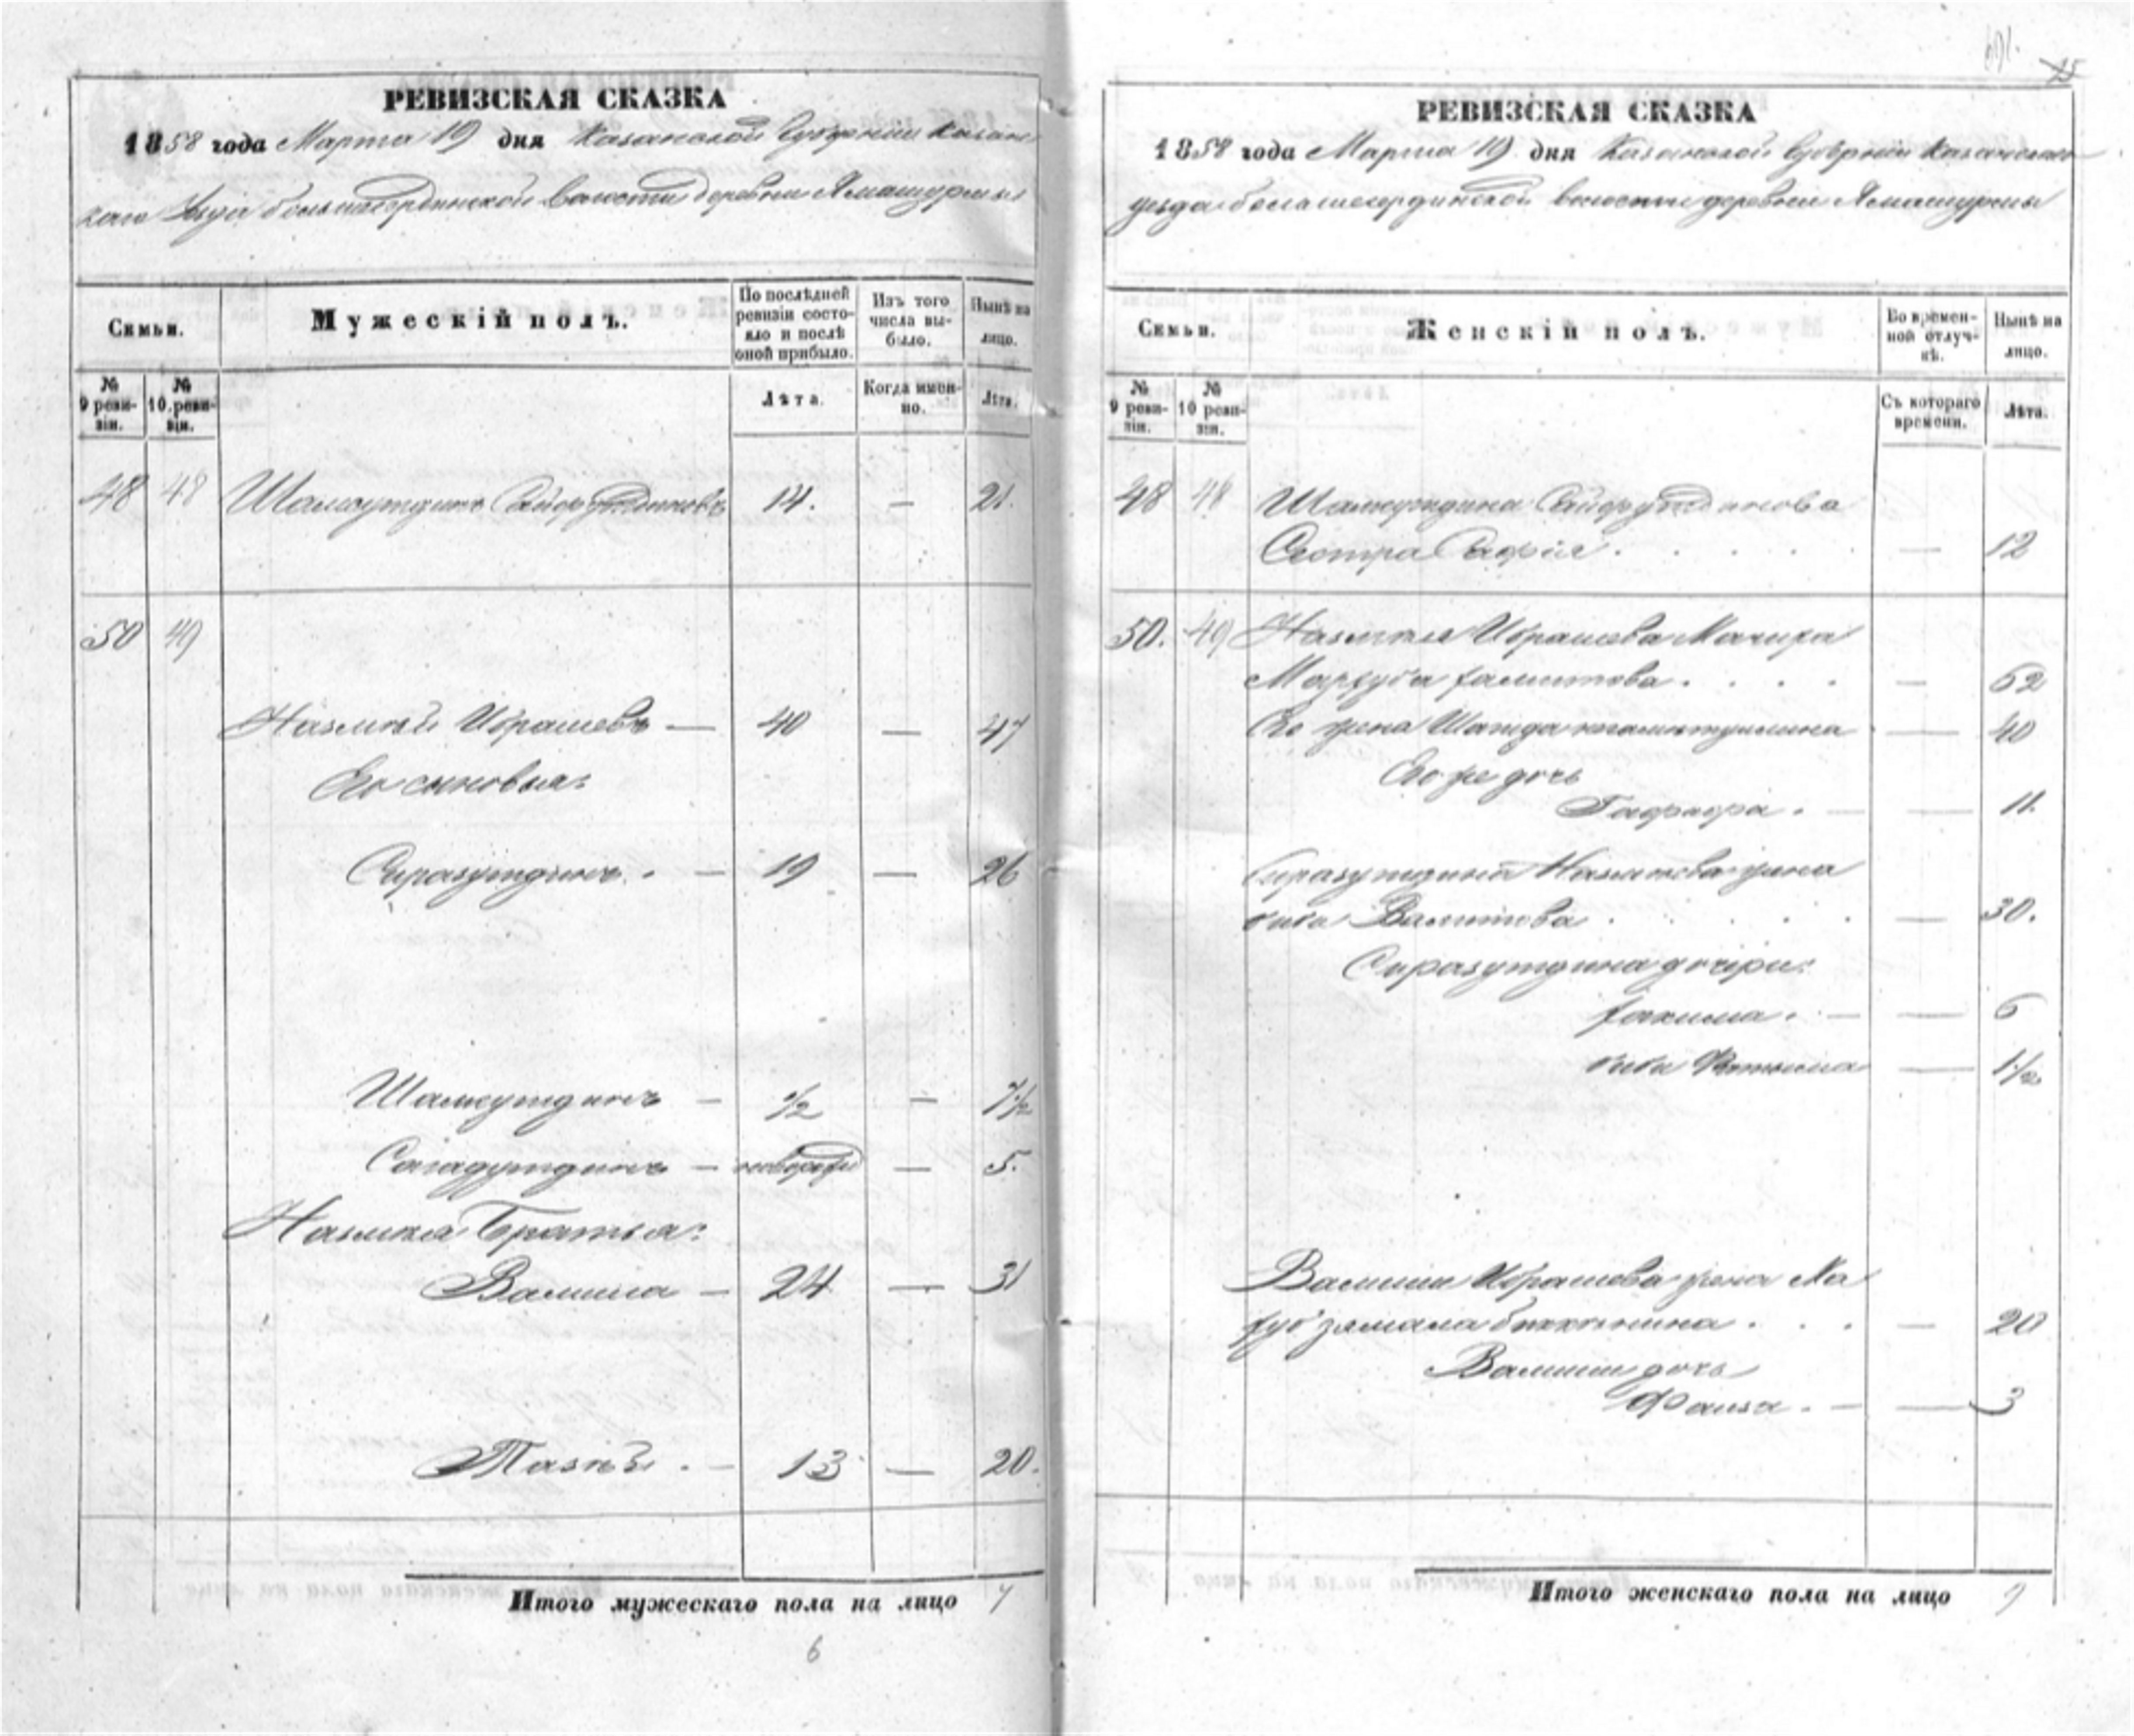 РЕВИЗСКАЯ СКАЗКА
1858 года Марта 19 дня Казанской Губернии Казан-
скаго Уезда большесердинской волости деревни Ямашурмы
Семьи.
Мужескій полъ.
По послѣдней ревизіи состояло и послѣ оной прибыло.
Изъ того числа выбыло.
Нынѣ на лицо.
№ 9 ревизіи.
№ 10 ревизіи.
Лѣта.
Когда именно.
Лѣта.
48 48 Шамсутдинъ Сайфутдиновъ 14. — 21.
50 49
Назмѣй Ибрашевъ — 40 — 47
Его сыновья:
Сиразутдинъ. — 19 — 26
Шамсутдинъ — 1/2 — 7 1/2
Сагадутдинъ — новорож — 5.
Назмѣя Братья:
Валиша — 24 — 31
Тазѣй. — 13 — 20.
Итого мужескаго пола на лицо 7
6
75
РЕВИЗСКАЯ СКАЗКА
1858 года Марта 19 дня Казанской Губерніи Казанскаго
уезда большесердинской волости деревни Ямашурмы
Семьи.
Женскій полъ.
Во временной отлучкѣ.
Нынѣ на лицо.
№ 9 ревизіи.
№ 10 ревизіи.
Съ котораго времени.
Лѣта.
48 48 Шамсутдина Сайфутдинова
Сестра Сафія. — 12
50. 49 Назмѣя Ибрашева Мачиха
Мархуба Халитова. — 62
Его жена Шагида — 40
Его же дочь
Гафифа. — 11.
Сиразутдина Назмѣева жена
биби Валитова — 30.
Сиразутдина дочери:
Хакима. — 6
биби Фатыма — 1 1/2
Валиши Ибрашева жена Ма
хубзямала — 20
Валиши дочь
Фаиза. — 3
Итого женскаго пола на лицо 9